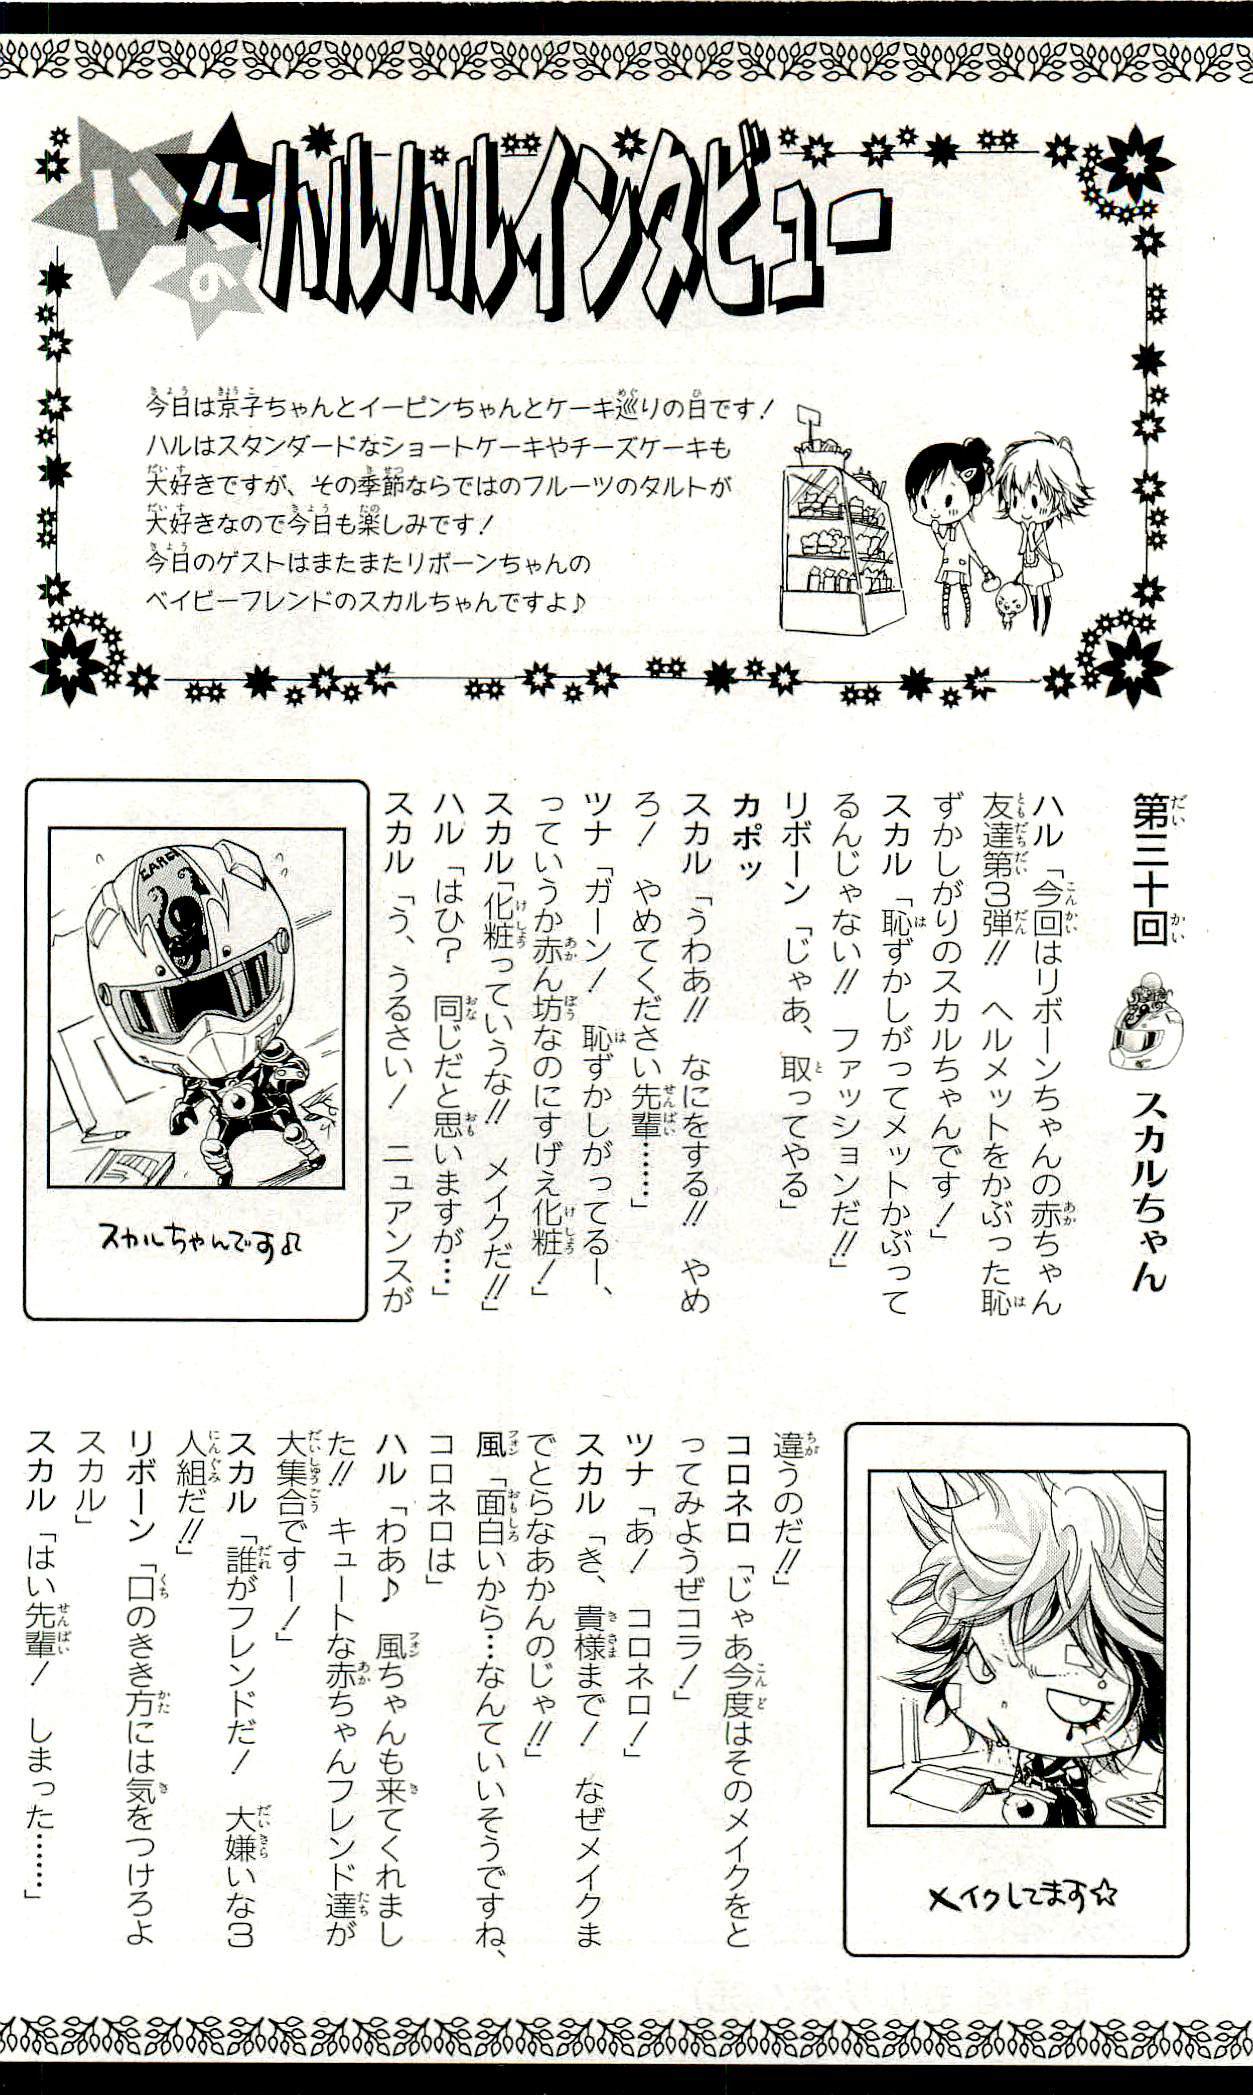 ハルの
ハルハルインタビュー
今日は京子ちゃんとイーピンちゃんとケーキ巡りの日です！
ハルはスタンダードなショートケーキやチーズケーキも
大好きですが、その季節ならではのフルーツのタルトが
大好きなので今日も楽しみです！
今日のゲストはまたまたリボーンちゃんの
ベイビーフレンドのスカルちゃんですよ♪
第三十回 スカルちゃん
ハル「今回はリボーンちゃんの赤ちゃん
友達第3弾!! ヘルメットをかぶった恥
ずかしがりのスカルちゃんです！」
スカル「恥ずかしがってメットかぶって
るんじゃない!! ファッションだ!!」
リボーン「じゃあ、取ってやる」
カポッ
スカル「うわあ!! なにをする!! やめ
ろ！ やめてください先輩……」
ツナ「ガーン！ 恥ずかしがってるー、
っていうか赤ん坊なのにすげえ化粧！」
スカル「化粧っていうな!! メイクだ!!」
ハル「はひ？ 同じだと思いますが…」
スカル「う、うるさい！ ニュアンスが
EARCE
スカルちゃんです♫
メイクしてます☆
違うのだ!!」
コロネロ「じゃあ今度はそのメイクをと
ってみようぜコラ！」
ツナ「あ！ コロネロ！」
スカル「き、貴様まで！ なぜメイクま
でとらなあかんのじゃ!!」
風「面白いから…なんていいそうですね、
コロネロは」
ハル「わあ♪ 風ちゃんも来てくれまし
た!! キュートな赤ちゃんフレンド達が
大集合ですー！」
スカル「誰がフレンドだ！ 大嫌いな3
人組だ!!」
リボーン「口のきき方には気をつけろよ
スカル」
スカル「はい先輩！ しまった……」